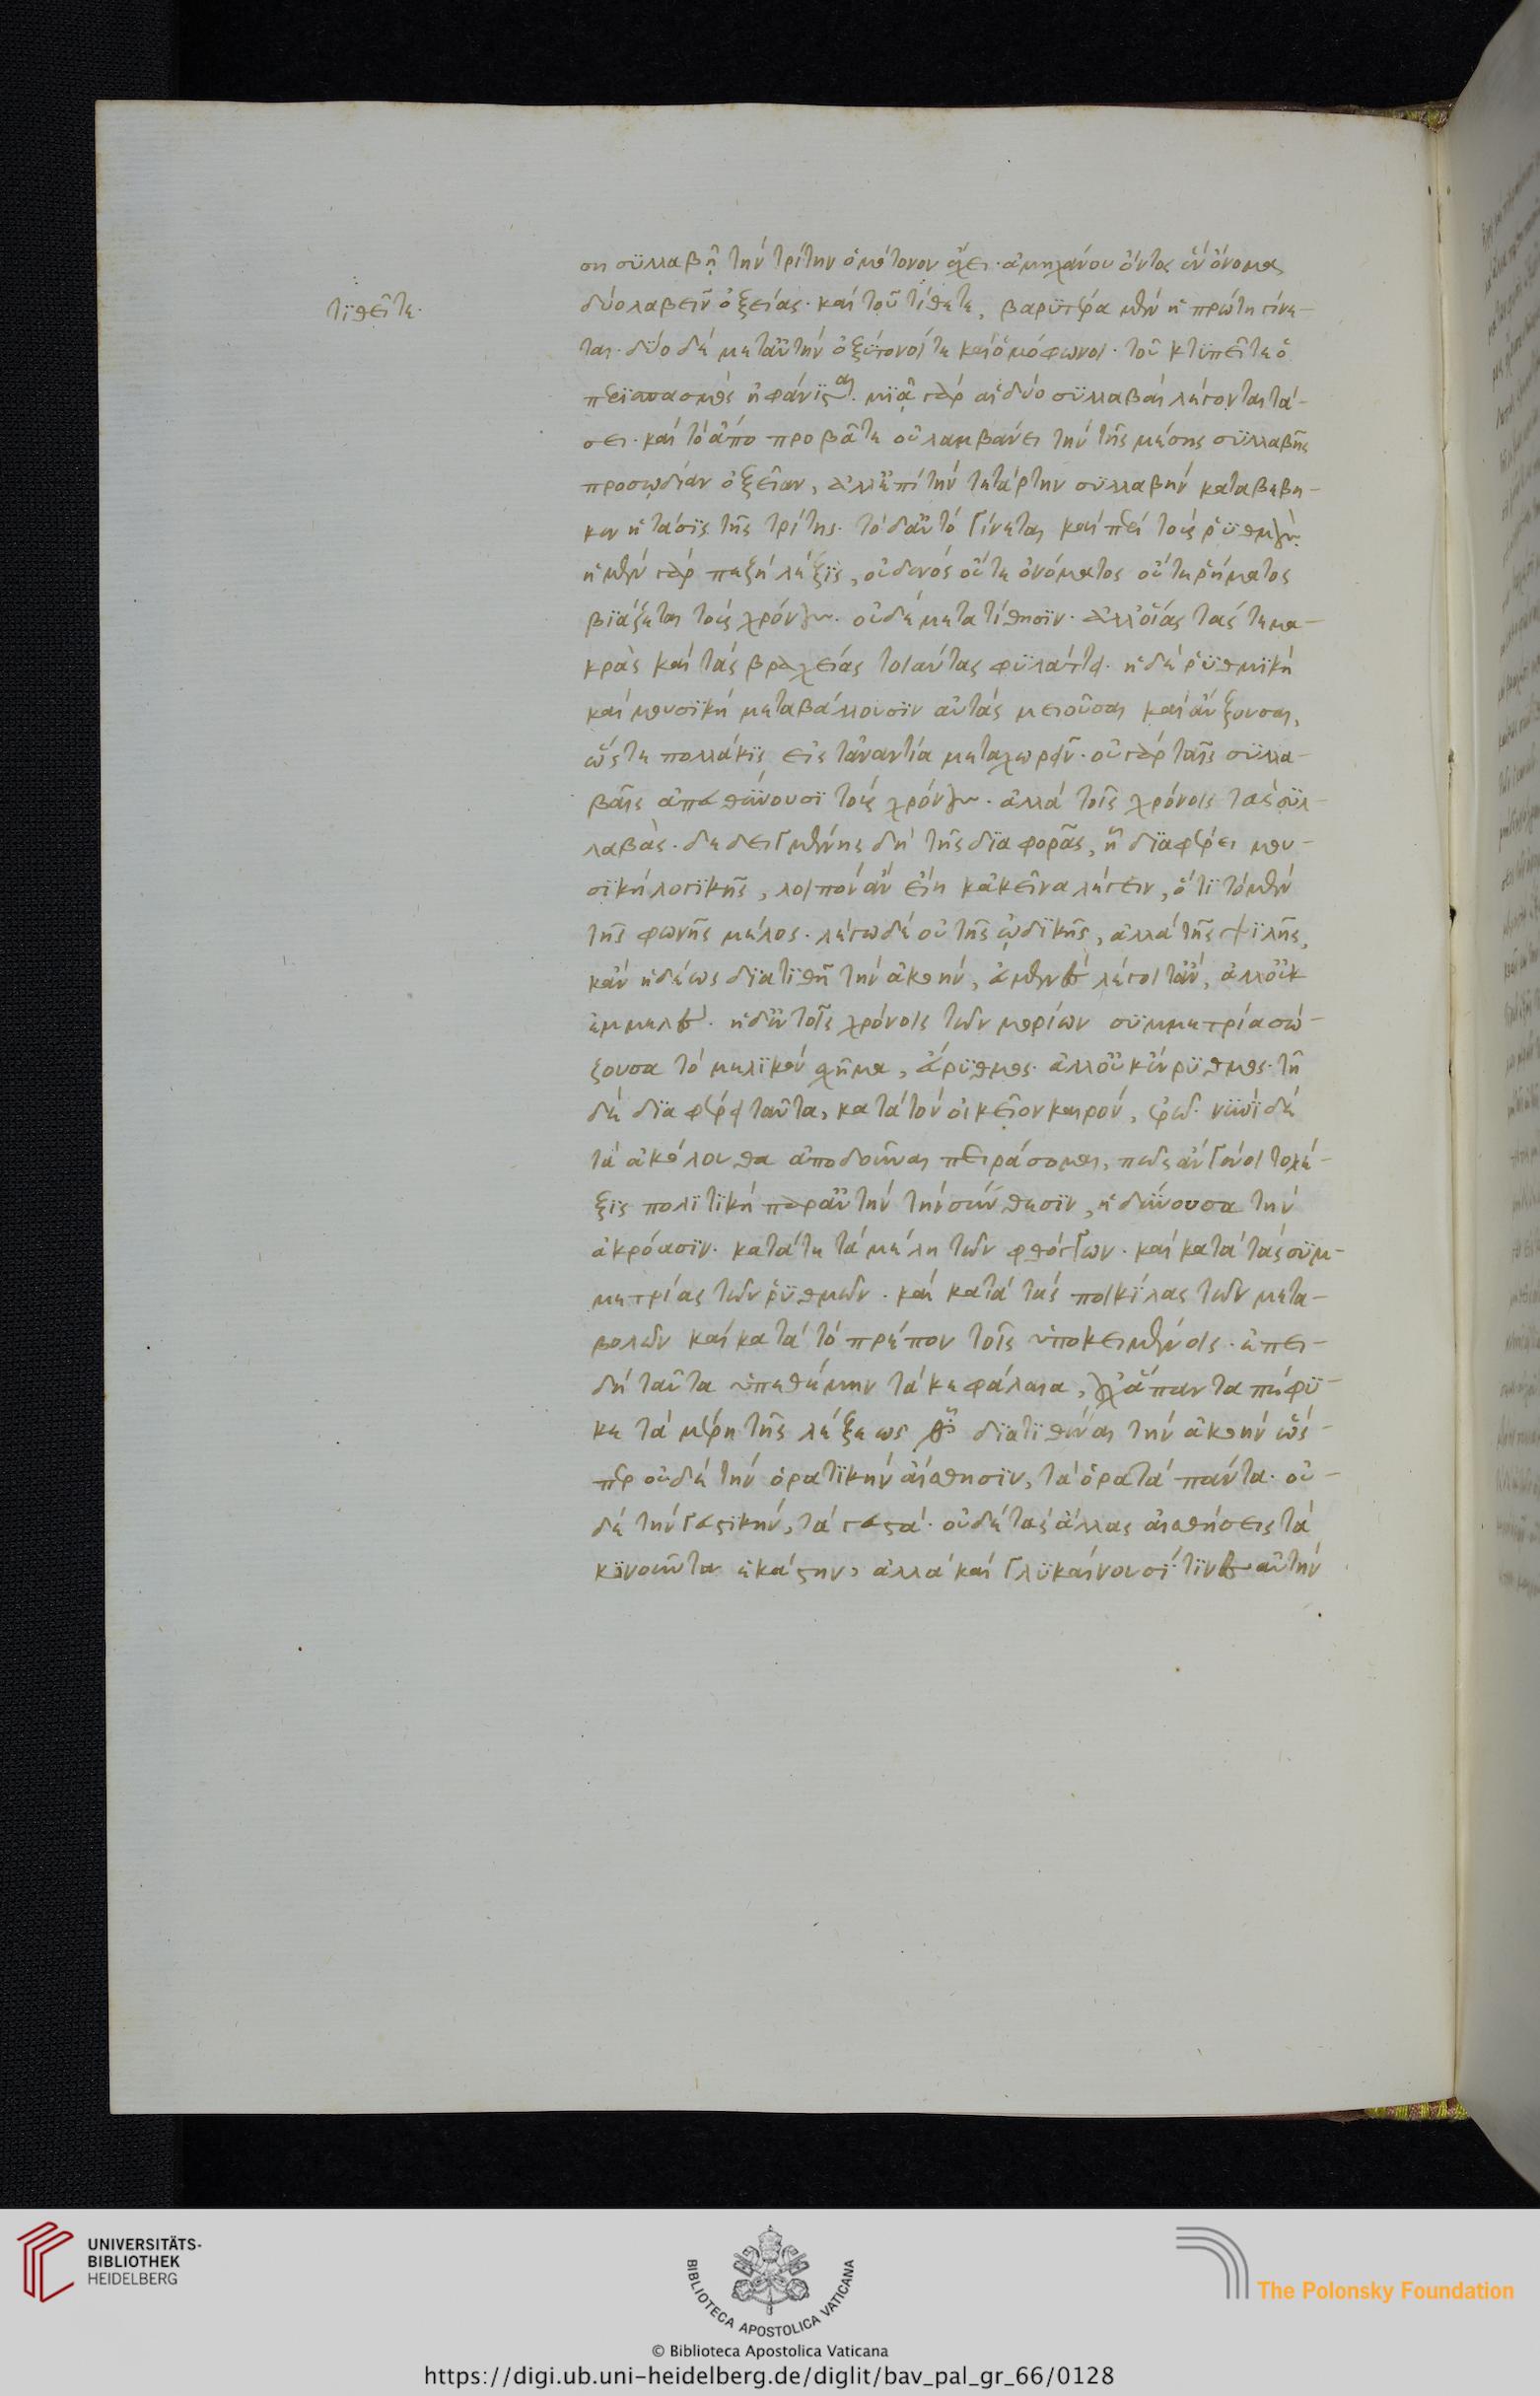 ση συλλαβῇ τὴν τρίτην ὁμότονον ἔχει· ἀμηχάνου ὄντος ἓν ὄνομα
δύο λαβεῖν ὀξείας· καὶ τοῦ τίθετε, βαρυτέρα μὲν ἡ πρώτη γίνε-
τίθεῖτε·
ται· δύο δὲ μετ' αὐτὴν ὀξύτονοί τε καὶ ὁμόφωνοι· τοῦ κτυπεῖτε ὁ
περισπασμὸς ἠφάνισται· μιᾷ γὰρ αἱ δύο συλλαβαὶ λέγονται τά-
σει· καὶ τὸ ἀποπροβᾶτε οὐ λαμβάνει τὴν τῆς μέσης συλλαβῆς
προσῳδίαν ὀξεῖαν, ἀλλ' ἐπὶ τὴν τετάρτην συλλαβὴν καταβέβη-
κεν ἡ τάσις τῆς τρίτης· τὸ δ' αὐτὸ γίνεται καὶ περὶ τοὺς ῥυθμούς·
ἡ μὲν γὰρ πεζὴ λέξις, οὐδενὸς οὔτε ὀνόματος οὔτε ῥήματος
βιάζεται τοὺς χρόνους· οὐδὲ μετατίθησιν· ἀλλ' οἵας τάς τε μα-
κρὰς καὶ τὰς βραχείας τοιαύτας φυλάττει· ἡ δὲ ῥυθμικὴ
καὶ μουσικὴ μεταβάλλουσιν αὐτὰς μειοῦσαι καὶ αὔξουσαι,
ὥστε πολλάκις εἰς τἀναντία μεταχωρεῖν· οὐ γὰρ ταῖς συλλα-
βαῖς ἀπευθύνουσι τοὺς χρόνους· ἀλλὰ τοῖς χρόνοις τὰς συλ-
λαβὰς· δεδειγμένης δὴ τῆς διαφορᾶς, ᾗ διαφέρει μου-
σικὴ λογικῆς, λοιπὸν ἂν εἴη κἀκεῖνα λέγειν, ὅτι τὸ μὲν
τῆς φωνῆς μέλος· λέγω δὲ οὐ τῆς ᾠδικῆς, ἀλλὰ τῆς ψιλῆς,
κἂν ἡδέως διατιθῇ τὴν ἀκοὴν, εὐμελὲς λέγοιτ' ἂν, ἀλλ' οὐκ
ἐμμελὲς· ἡ δ' ἐν τοῖς χρόνοις τῶν μορίων συμμετρία σώ-
ζουσα τὸ μελικὸν σχῆμα, εὔρυθμος· ἀλλ' οὐκ ἔνρυθμος· πῆ
δὲ διαφέρει ταῦτα, κατὰ τὸν οἰκεῖον καιρὸν, ἐρῶ· νυνὶ δὲ
τὰ ἀκόλουθα ἀποδοῦναι πειράσομαι, πῶς ἂν γένοιτο λέ-
ξις πολιτικὴ παρ' αὐτὴν τὴν σύνθεσιν, ἡδύνουσα τὴν
ἀκρόασιν· κατά τε τὰ μέλη τῶν φθόγγων· καὶ κατὰ τὰς συμ-
μετρίας τῶν ῥυθμῶν· καὶ κατὰ τὰς ποικίλας τῶν μετα-
βολῶν καὶ κατὰ τὸ πρέπον τοῖς ὑποκειμένοις· ἐπει-
δὴ ταῦτα ὑπεθέμην τὰ κεφάλαια, οὐχ ἅπαντα πέφυ-
κε τὰ μέρη τῆς λέξεως διατιθέναι τὴν ἀκοὴν ὥς-
περ οὐδὲ τὴν ὁρατικὴν αἴσθησιν, τὰ ὁρατὰ πάντα· οὐ-
δὲ τὴν γευστικὴν, τὰ γευστὰ· οὐδὲ τὰς ἄλλας αἰσθήσεις τὰ
κινοῦντα ἑκάστην, ἀλλὰ καὶ γλυκαίνουσί τινες αὐτὴν
UNIVERSITÄTS-
BIBLIOTHEK
HEIDELBERG
BIBLIOTECA APOSTOLICA VATICANA
The Polonsky Foundation
© Biblioteca Apostolica Vaticana
https://digi.ub.uni-heidelberg.de/diglit/bav_pal_gr_66/0128